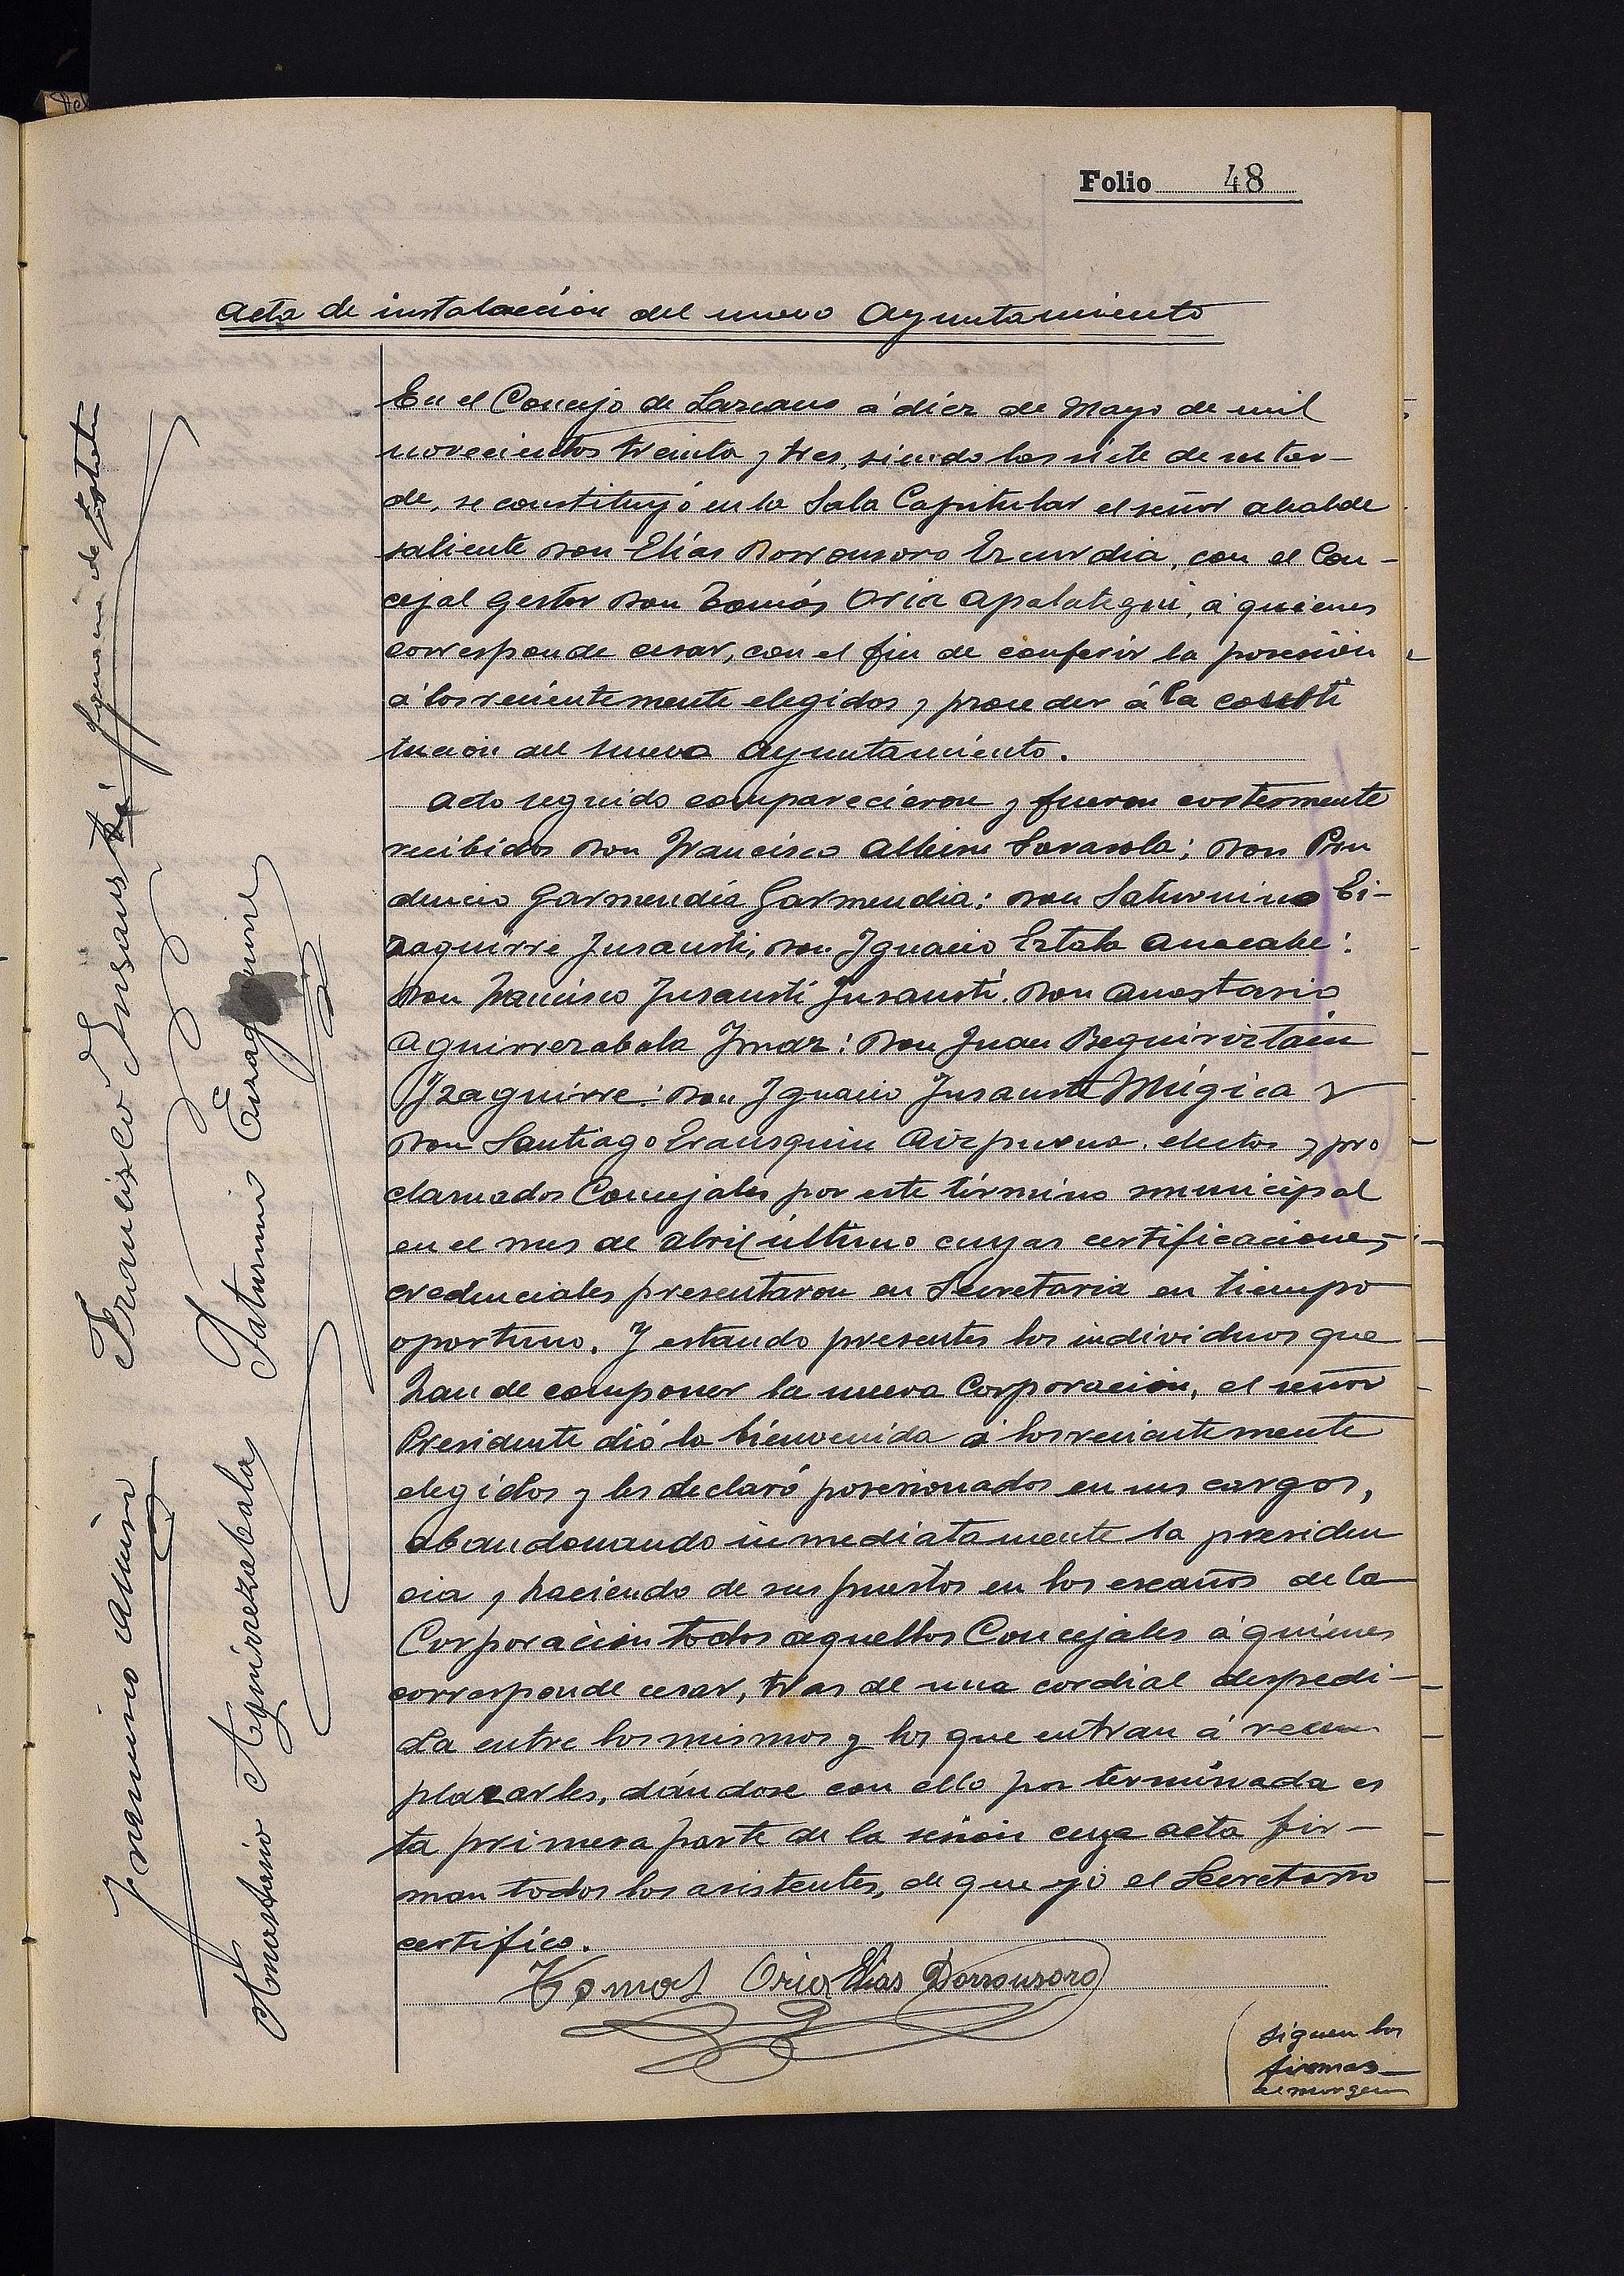 Folio 48
Acta de instalación del nuevo Ayuntamiento
En el Concejo de Lazcano á diez de Mayo de mil
novecientos treinta y tres, siendo las siete de su tar-
de, se constituyó en la Sala Capitular el señor alcalde
saliente Don Elías Dorronsoro Ezcurdia, con el Con-
cejal gestor Don Tomás Oria Apalategui, á quienes
corresponde cesar, con el fin de conferir la posesión
á los recientemente elegidos y proceder á la consti
tución del nuevo Ayuntamiento.
Acto seguido comparecieron y fueron cortesmente
recibidos Don Francisco Albisu Sarasola; Don Pru
dencio Garmendia Garmendia; Don Saturnino Ei-
zaguirre Insausti, Don Ignacio Estala
Don Francisco Insausti Insausti. Don Anastasio
Aguirrezabala Imaz; Don Juan Beguiristain
Izaguirre; Don Ignacio Insausti Múgica y
Don Santiago Irausquin Aizpurua, electos y pro
clamados Concejales por este término municipal
en el mes de Abril último cuyas certificaciones
credenciales presentaron en Secretaria en tiempo
oportuno. Y estando presentes los individuos que
han de componer la nueva Corporación, el señor
Presidente dió la bienvenida á los recientemente
elegidos y les declaró posesionados en sus cargos,
abandonando inmediatamente la presiden
cia y haciendo de sus puestos en los escaños de la
Corporación todos aquellos Concejales á quienes
corresponde cesar, tras de una cordial despedi-
da entre los mismos y los que entran á reem
plazarles, dándose con ello por terminada es
ta primera parte de la sesión cuya acta fir-
man todos los asistentes, de que yó el Secretario
certifico.
Tomas Oria Elias Dorronsoro
Siguen las
firmas
al margen
Francisco Insausti Ignacio de
Saturnino Eizaguirre
Anastasio Aguirrezabala